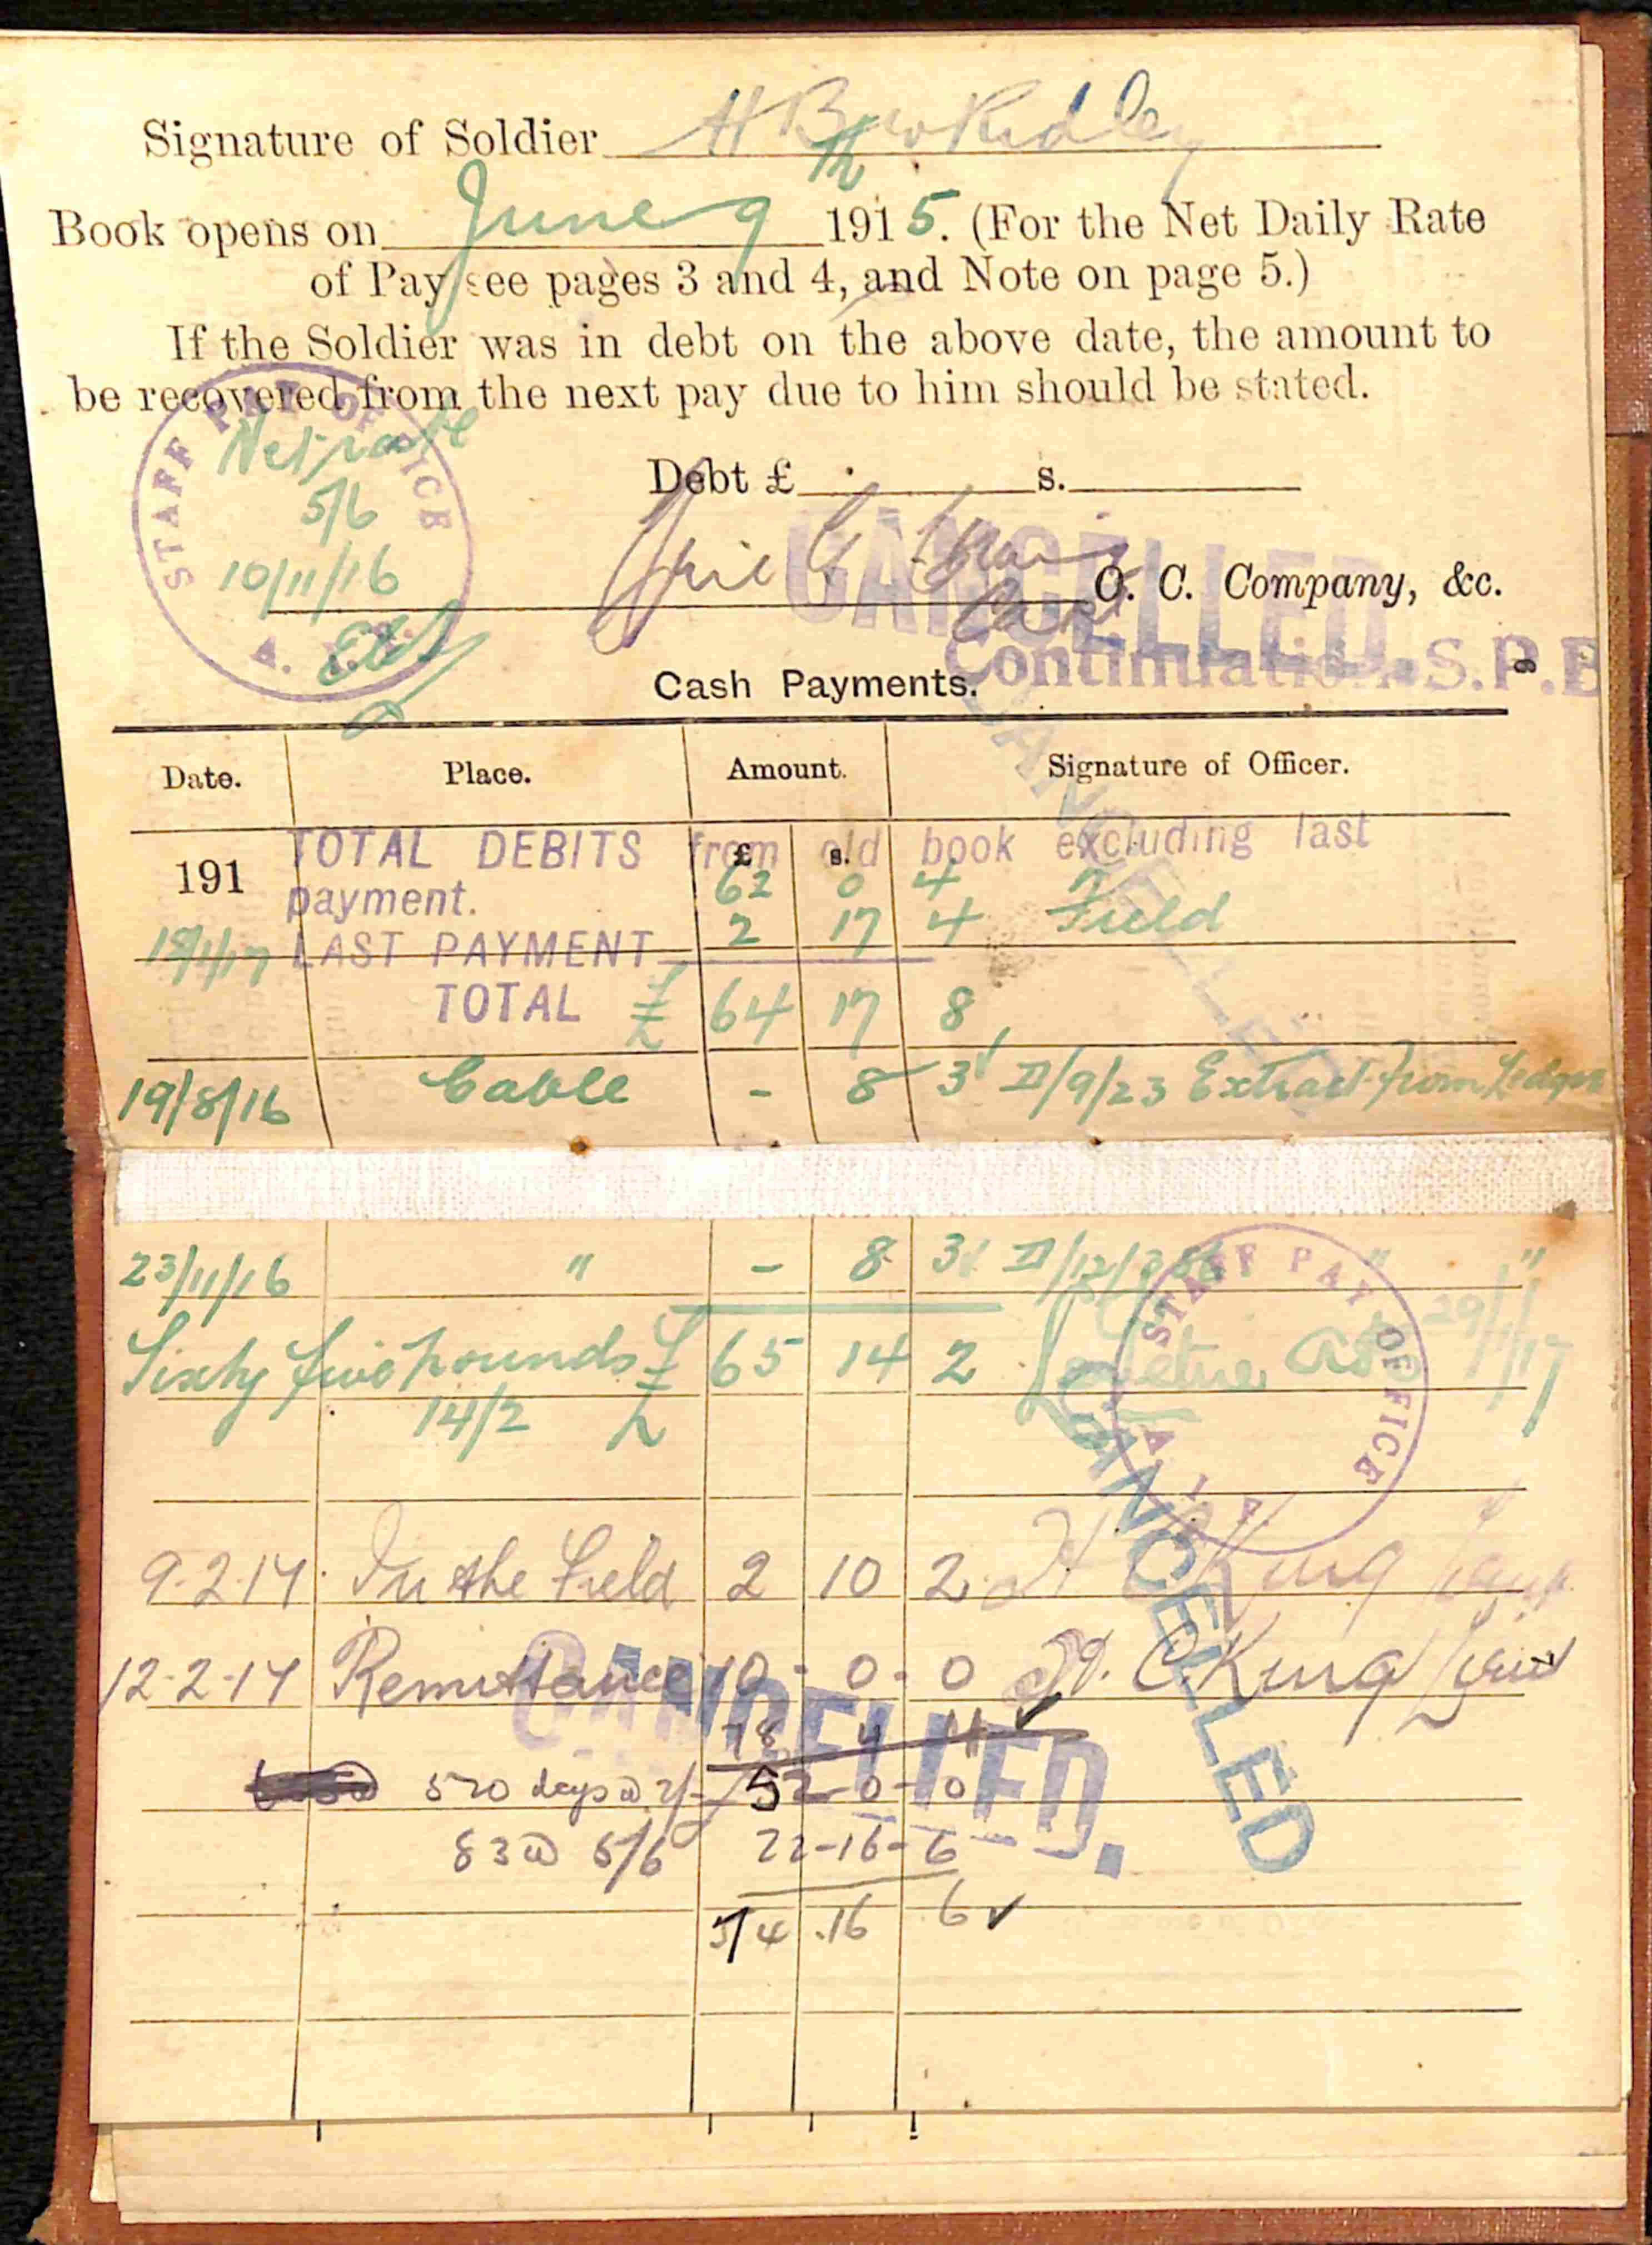 Signature of Soldier H B Ridley
Book opens on June 9th 1915. (For the Net Daily Rate
of Pay see pages 3 and 4, and Note on page 5.)
If the Soldier was in debt on the above date, the amount to
be recovered from the next pay due to him should be stated.
STAFF PAY OFFICE
Net rate
5/6
10/11/16
Debt £ s.
CANCELLED.
O. C. Company, &c.
Continuation S.P.B
Cash Payments.
CANCELLED
Date. Place. Amount. Signature of Officer.
191 £ s.
TOTAL DEBITS from old book excluding last
payment. 62 0 4
18/1/17 LAST PAYMENT 2 17 4 Field
TOTAL £ 64 17 8
19/8/16 Cable - 8 3 II/9/23 Extract from Ledger
23/11/16 " - 8 3 II/12/386 " "
STAFF PAY OFFICE A. I. F.
Sixty five pounds £ 65 14 2 29/1/17
14/2
CANCELLED
9-2-17 In the Field 2 10 2 H C King Lieut
12-2-17 Remittance 10 - 0 - 0 H. C King Lieut
CANCELLED.
78 4 4
520 days @ 2/- 52-0-0
83 @ 5/6 22-16-6
74 .16 6